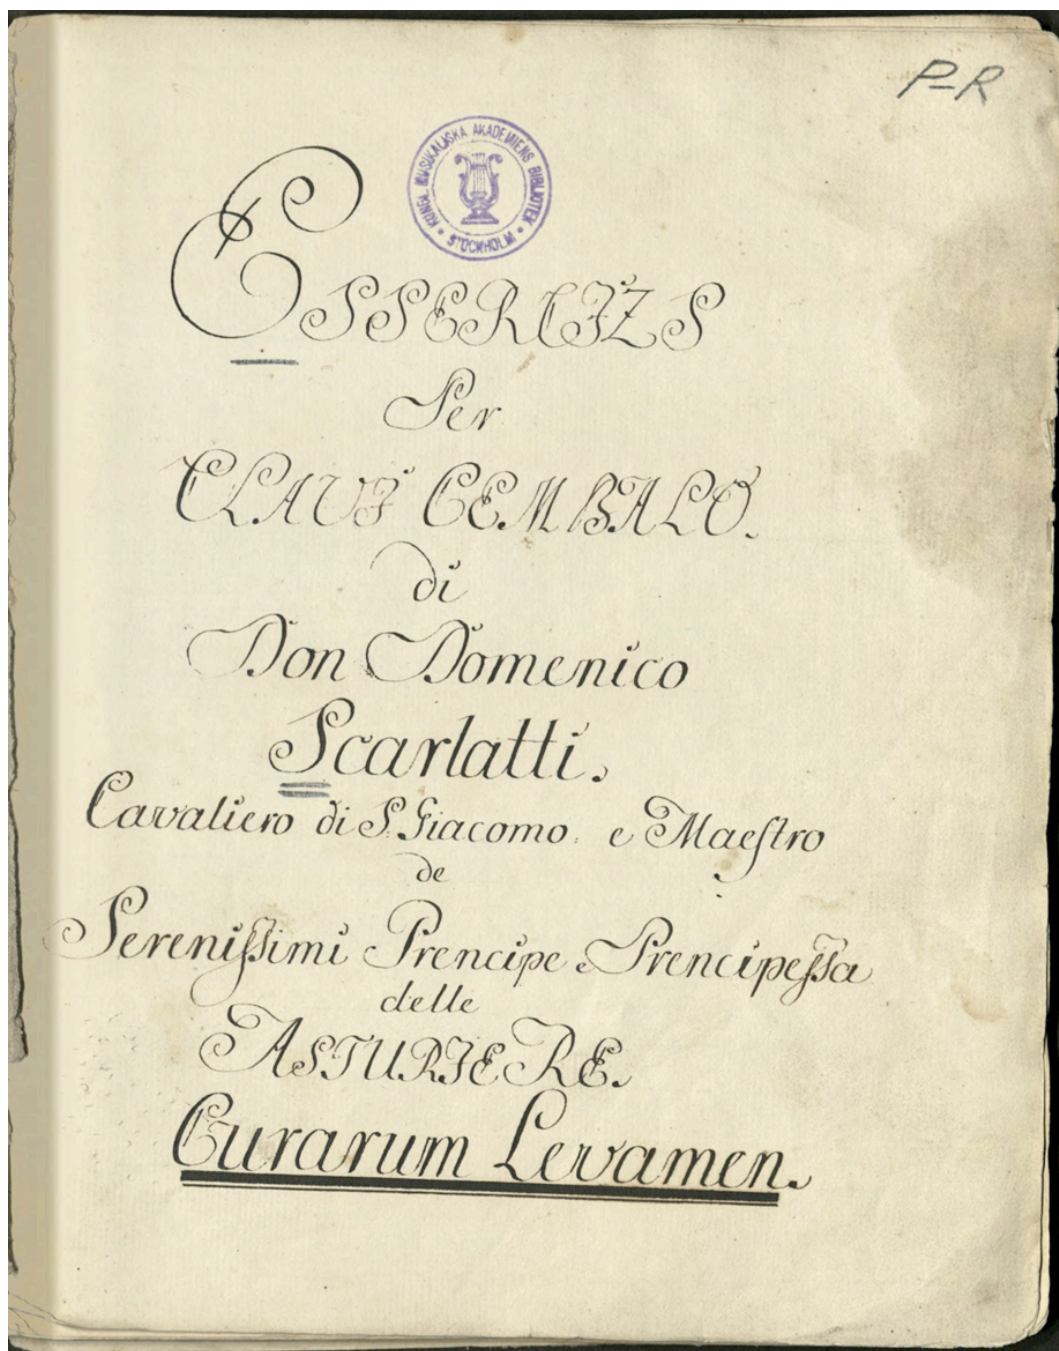 P-R
KUNGL. MUSIKALISKA AKADEMIENS BIBLIOTEK
STOCKHOLM
ESSERCIZS
Per
CLAVI CEMBALO.
di
Don Domenico
Scarlatti.
Cavaliero di S. Giacomo. e Maeſtro
de
Sereniſſimi Prencipe e Prencipeſſa
delle
ASTURIERE.
Curarum Levamen.